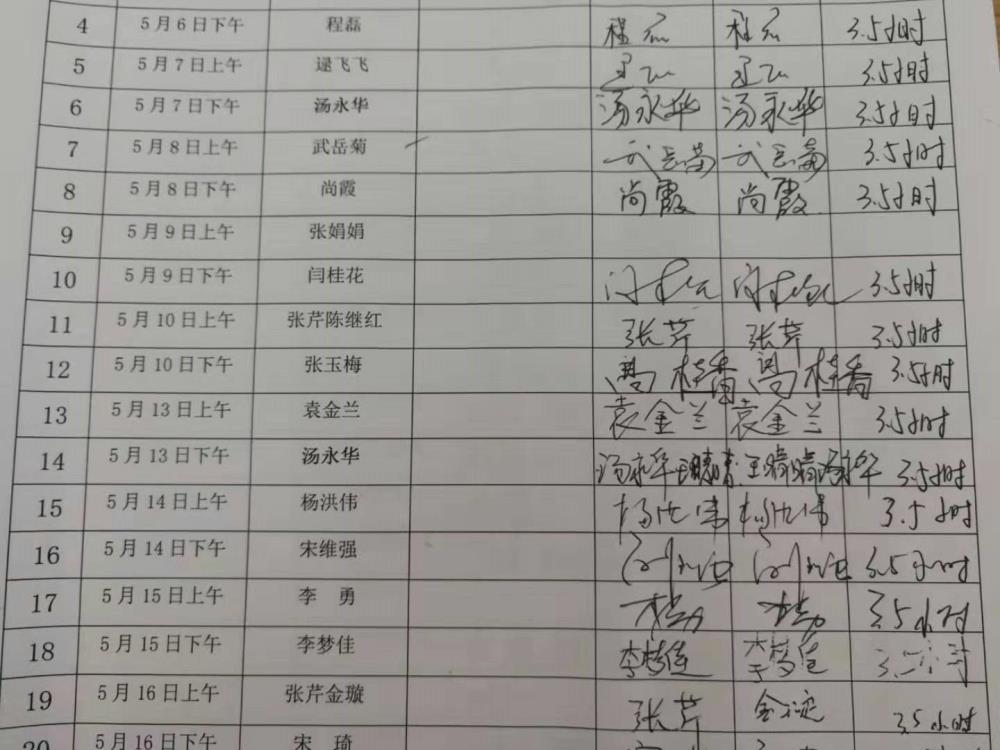 4 5月6日下午 程磊 程磊 程磊 3.5小时
5 5月7日上午 逯飞飞 3.5小时
6 5月7日下午 汤永华 汤永华 汤永华 3.5小时
7 5月8日上午 武岳菊 武岳菊 武岳菊 3.5小时
8 5月8日下午 尚霞 尚霞 尚霞 3.5小时
9 5月9日上午 张娟娟
10 5月9日下午 闫桂花 闫桂花 闫桂花 3.5小时
11 5月10日上午 张芹陈继红 张芹 张芹 3.5小时
12 5月10日下午 张玉梅 3.5小时
13 5月13日上午 袁金兰 袁金兰 袁金兰 3.5小时
14 5月13日下午 汤永华 汤永华 王晴晴 王晴晴 汤永华 3.5小时
15 5月14日上午 杨洪伟 杨洪伟 杨洪伟 3.5小时
16 5月14日下午 宋维强 3.5小时
17 5月15日上午 李 勇 李勇 李勇 3.5小时
18 5月15日下午 李梦佳 李梦佳 李梦佳 3.5小时
19 5月16日上午 张芹金璇 张芹 金璇 3.5小时
20 5月16日下午 宋 琦